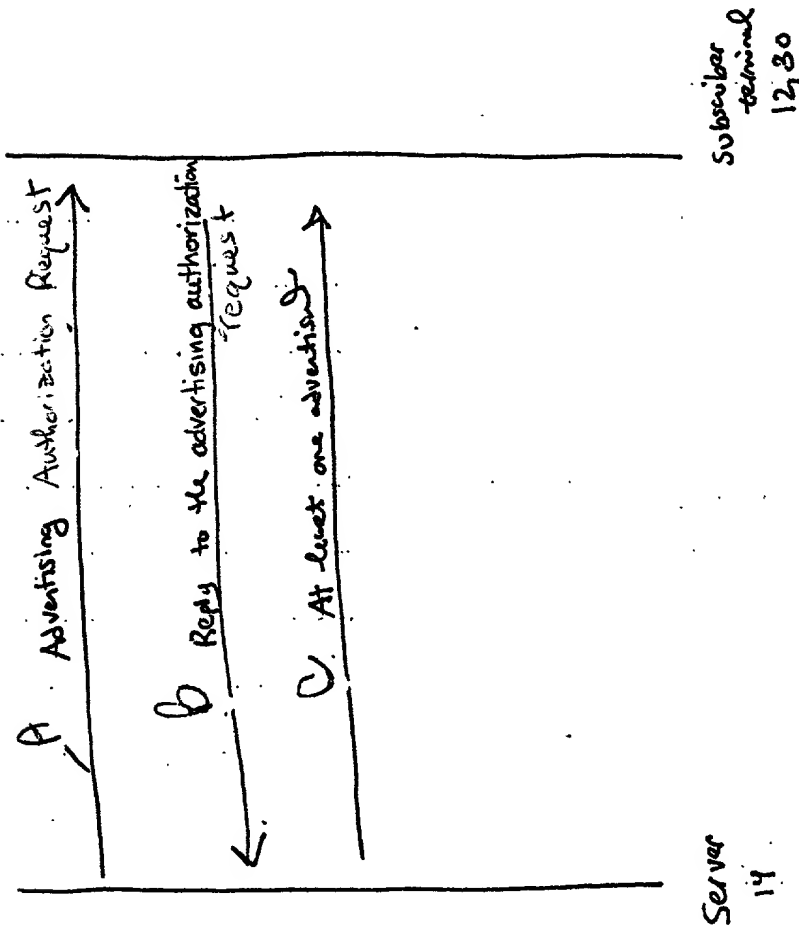 A Advertising Authorization Request
b Reply to the advertising authorization
request
C At least one advertising
Server
14
Subscriber
terminal
12,30